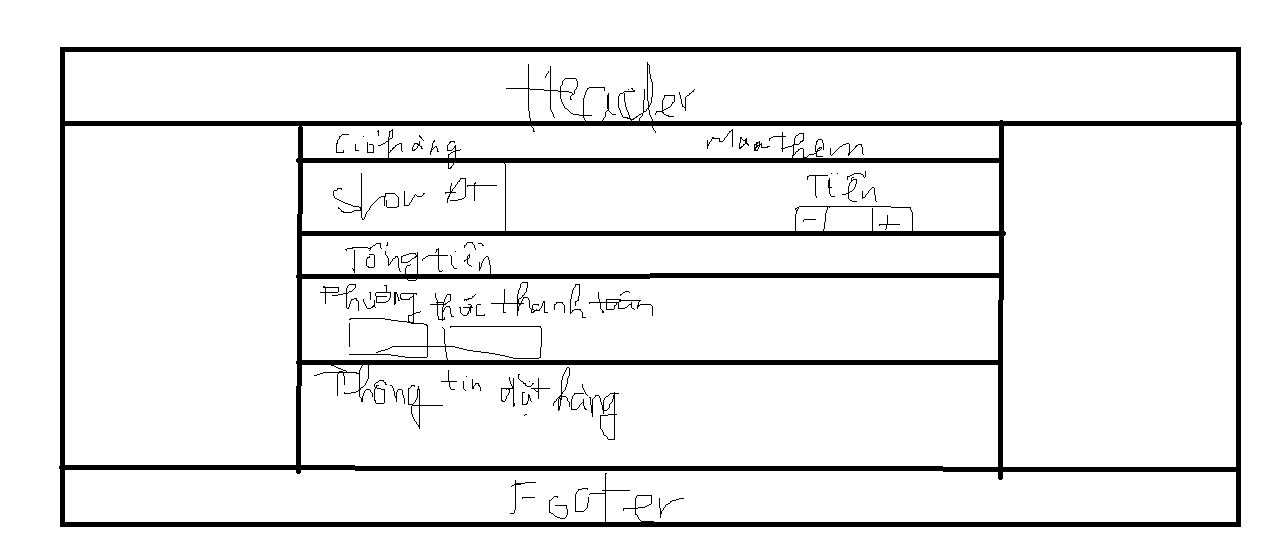 Header
Giỏ hàng Mua thêm
Show ĐT Tiền
- +
Tổng tiền
Phương thức thanh toán
Thông tin đặt hàng
Footer